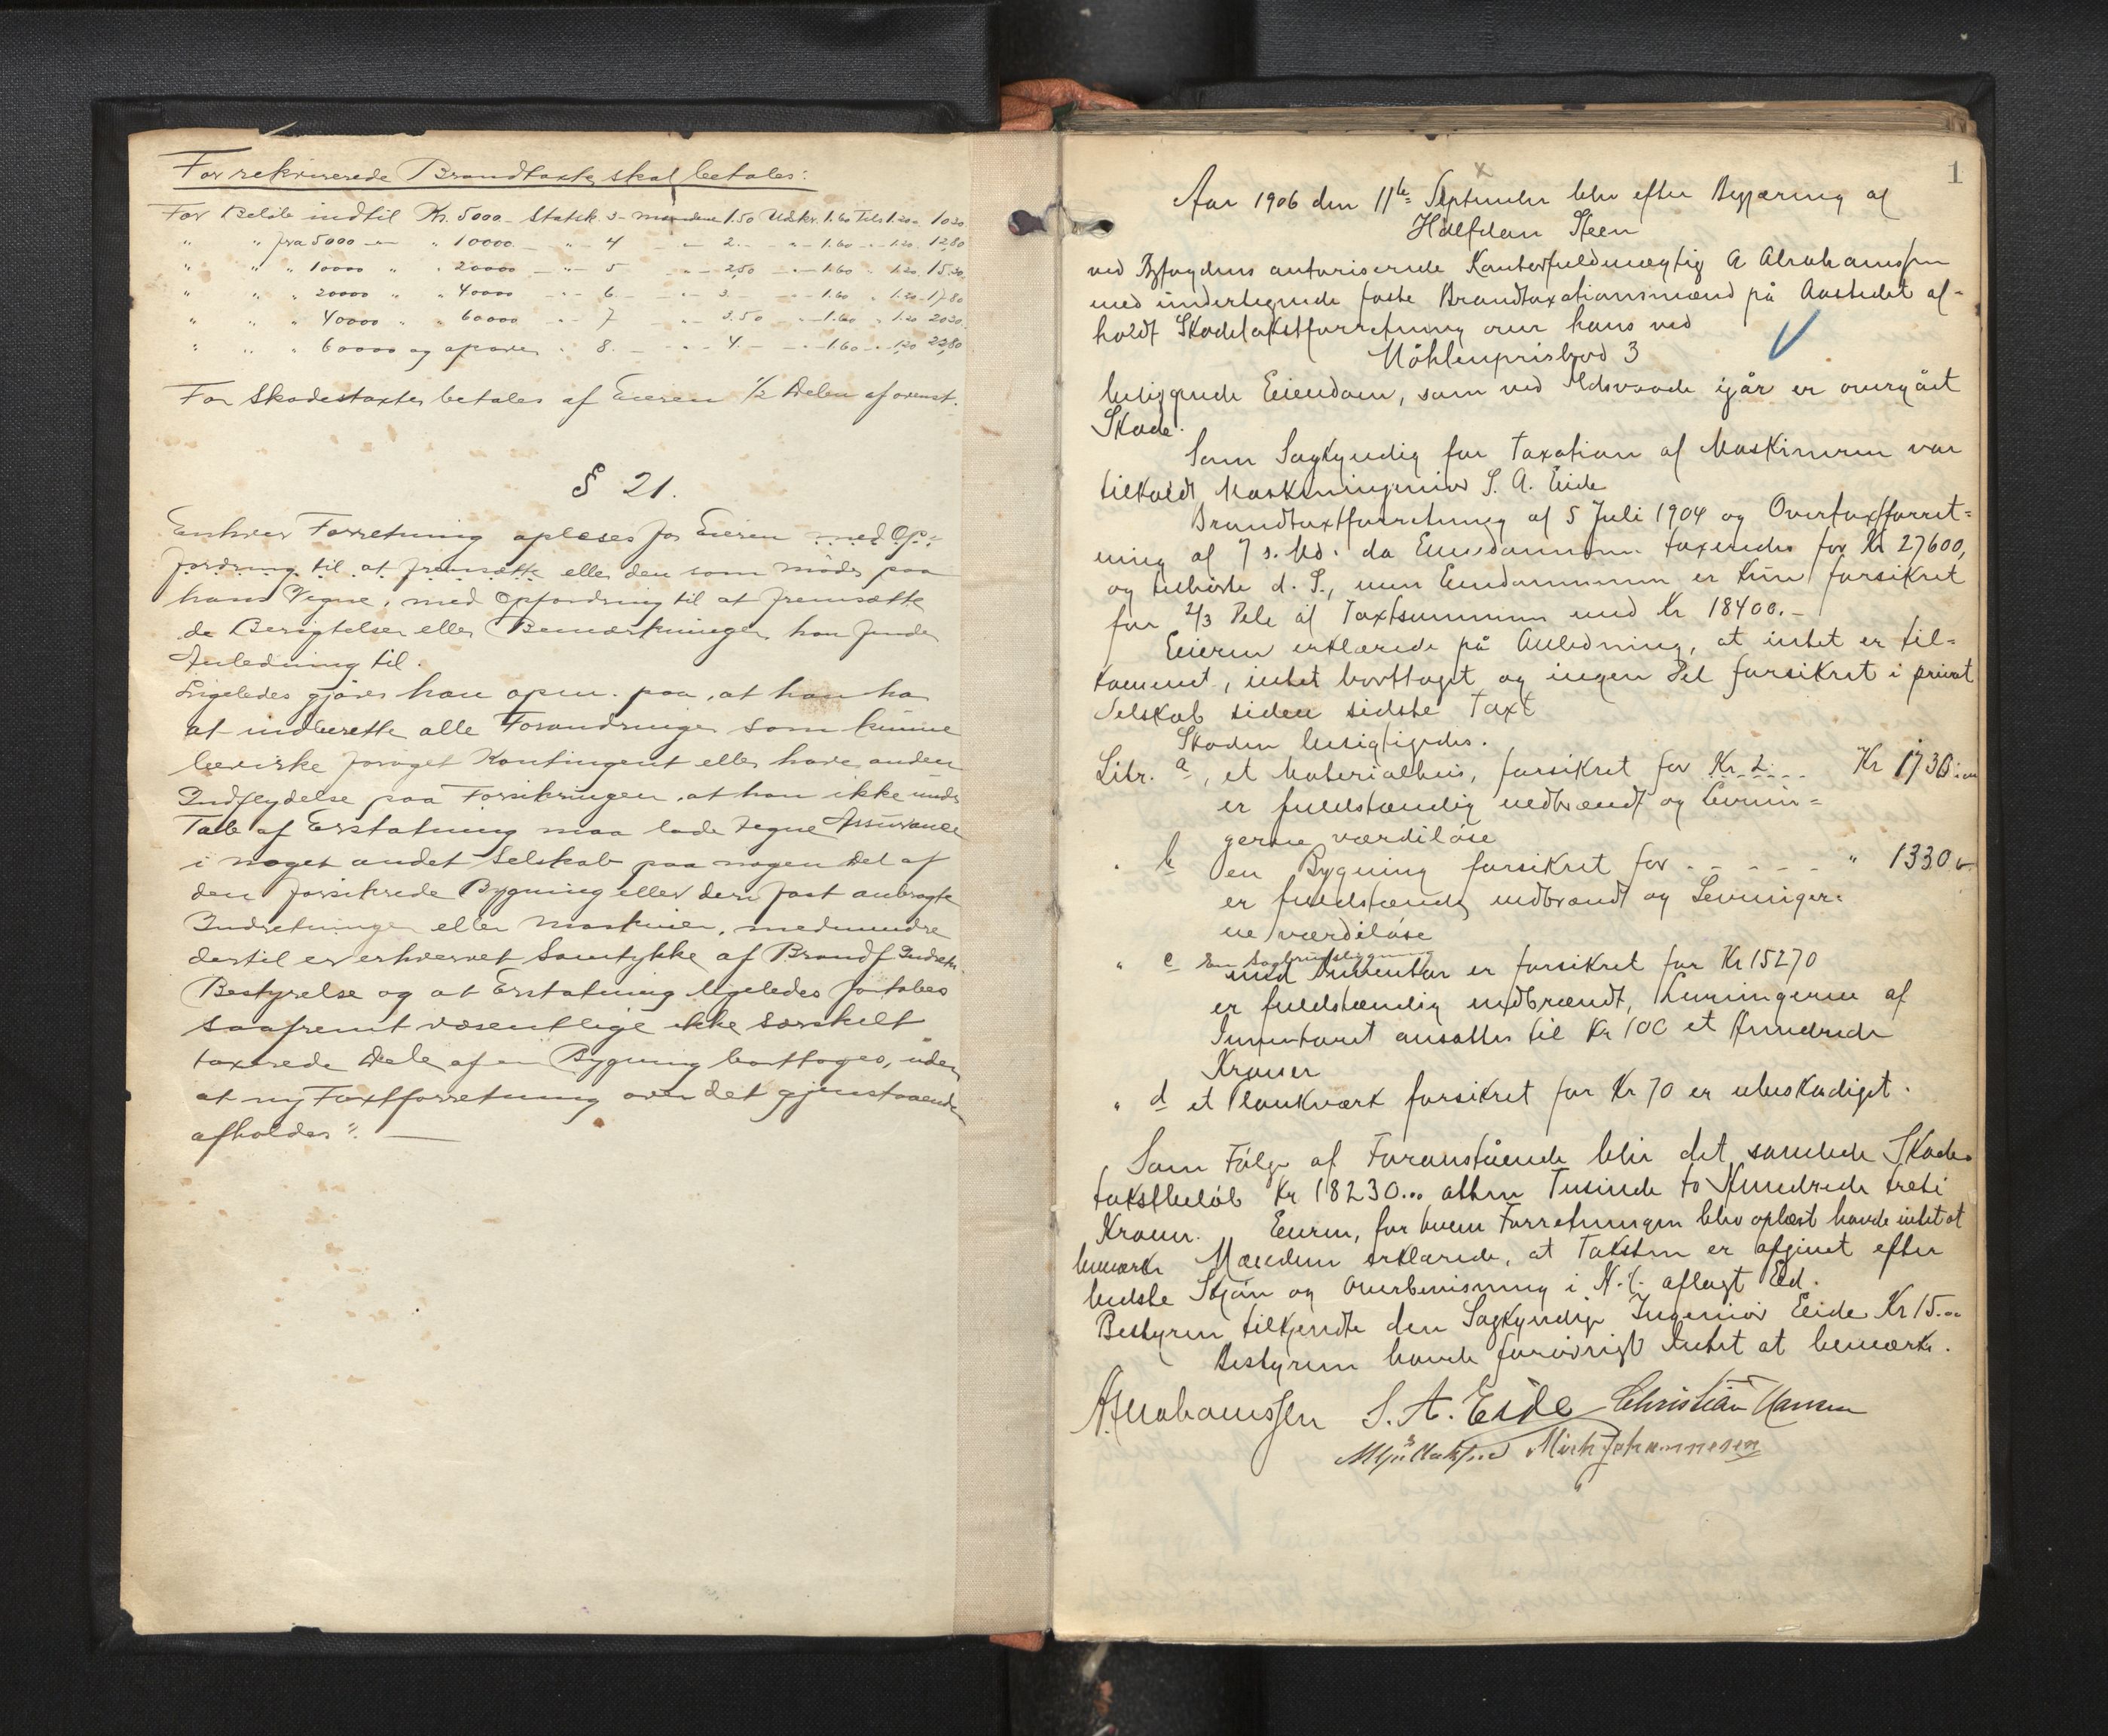 For rekvirerede Brandtaxter skal betales:
For Beløb indtil Kr. 5000 - Statsk. 3 - Mændene 1.50 Udskr. 1.60 Tils 1.20 = 10.30
" " fra 5000 — " 10000 — " — 4 — " — 2. — " — 1.60 — " — 1.20. 12.80
" " " 10000 " " 20000 — " — 5 — " — 2.50 — " — 1.60 " 1.20. 15.30
" " " 20000 " " 40000 — " — 6 — " — 3. — " — 1.60 " 1.20 - 17.80
" " " 40000 " " 60000 — " — 7 — " — 3.50 — " — 1.60 " 1.20 20.30
" " " 60000 og opover " 8. — " — 4. — " — 1.60 — " 1.20 22.80
For Skadestaxter betales af Eieren 1/2 Delen af ovenst.
§ 21.
Enhver Forretning oplæses for Eieren med Op-
fordring til at fremsætte eller den som møder paa
hans Vegne, med Opfordring til at fremsætte
de Berigtelser eller Bemærkninger han finder
Anledning til.
Ligeledes gjøres han opm. paa, at han har
at indberette alle Forandringer som kunne
bevirke forøget Kontingent eller have anden
Indflydelse paa Forsikringen, at han ikke under
Tab af Erstatning maa lade tegne Assurance
i noget andet Selskab paa nogen Del af
den forsikrede Bygning eller dens fast anbragte
Indretninger eller Maskiner, medmindre
dertil er erhvervet Samtykke af Brandf. Indretn.
Bestyrelse og at Erstatning ligeledes fortabes
saafremt væsentlige ikke særskilt
taxerede Dele af en Bygning borttages, uden
at ny Taxtforretning over det gjenstaaende
afholdes". —
1
Aar 1906 den 11te September blev efter Begjæring af
Halfdan Steen
ved Byfogdens autoriserede Kontorfuldmægtig A Abrahamssen
med undertegnede faste Brandtaxationsmænd på Aastedet af-
holdt Skadetakstforretning over hans ved
Möhlenprisbod 3
beliggende Eiendom, som ved Ildsvaade igår er overgået
Skade.
Som Sagkyndig for Taxation af Maskineren var
tilkaldt Maskiningeniør S. A. Eide
Brandtaxtforretning af 5 Juli 1904 og Overtaxtforret-
ning af 7 s. Md. da Eiendommen taxeredes for Kr 27600,
og tilhørte d. S., men Eiendommen er kun forsikret
for 2/3 Dele af Taxtsummen med Kr 18400. -
Eieren erklærede på Anledning, at intet er til-
kommet, intet borttaget og ingen Del forsikret i privat
Selskab siden sidste Taxt
Skaden besigtigedes.
Litr. a, et Materialhus, forsikret for Kr. Kr 1730
er fuldstændig nedbrændt og Levnin-
gerne værdiløse
" b en Bygning forsikret for - - - - - " 1330
er fuldstændig nedbrændt og Levninger-
ne værdiløse
" c En Sagbrugsbygning
med Inventar er forsikret for Kr 15270
er fuldstændig nedbrændt, Levningerne af
Inventaret ansattes til Kr 100 et Hundrede
Kroner
" d et Plankværk forsikret for Kr 70 er ubeskadiget.
Som Følge af Foranstående blir det samlede Skade-
takstbeløb Kr 18230... atten Tusinde to Hundrede treti
Kroner. Eieren, for hvem Forretningen blev oplæst havde intet at
bemærke Mændene erklærede, at Taksten er afgivet efter
bedste Skjøn og Overbevisning i H. t. aflagt Ed.
Bestyren tilkjendte den Sagkyndige Ingeniør Eide Kr 15.
Bestyren havde forøvrigt Intet at bemærke.
A. Abrahamssen S. A. Eide Christian Hansen
Mich Johannesen